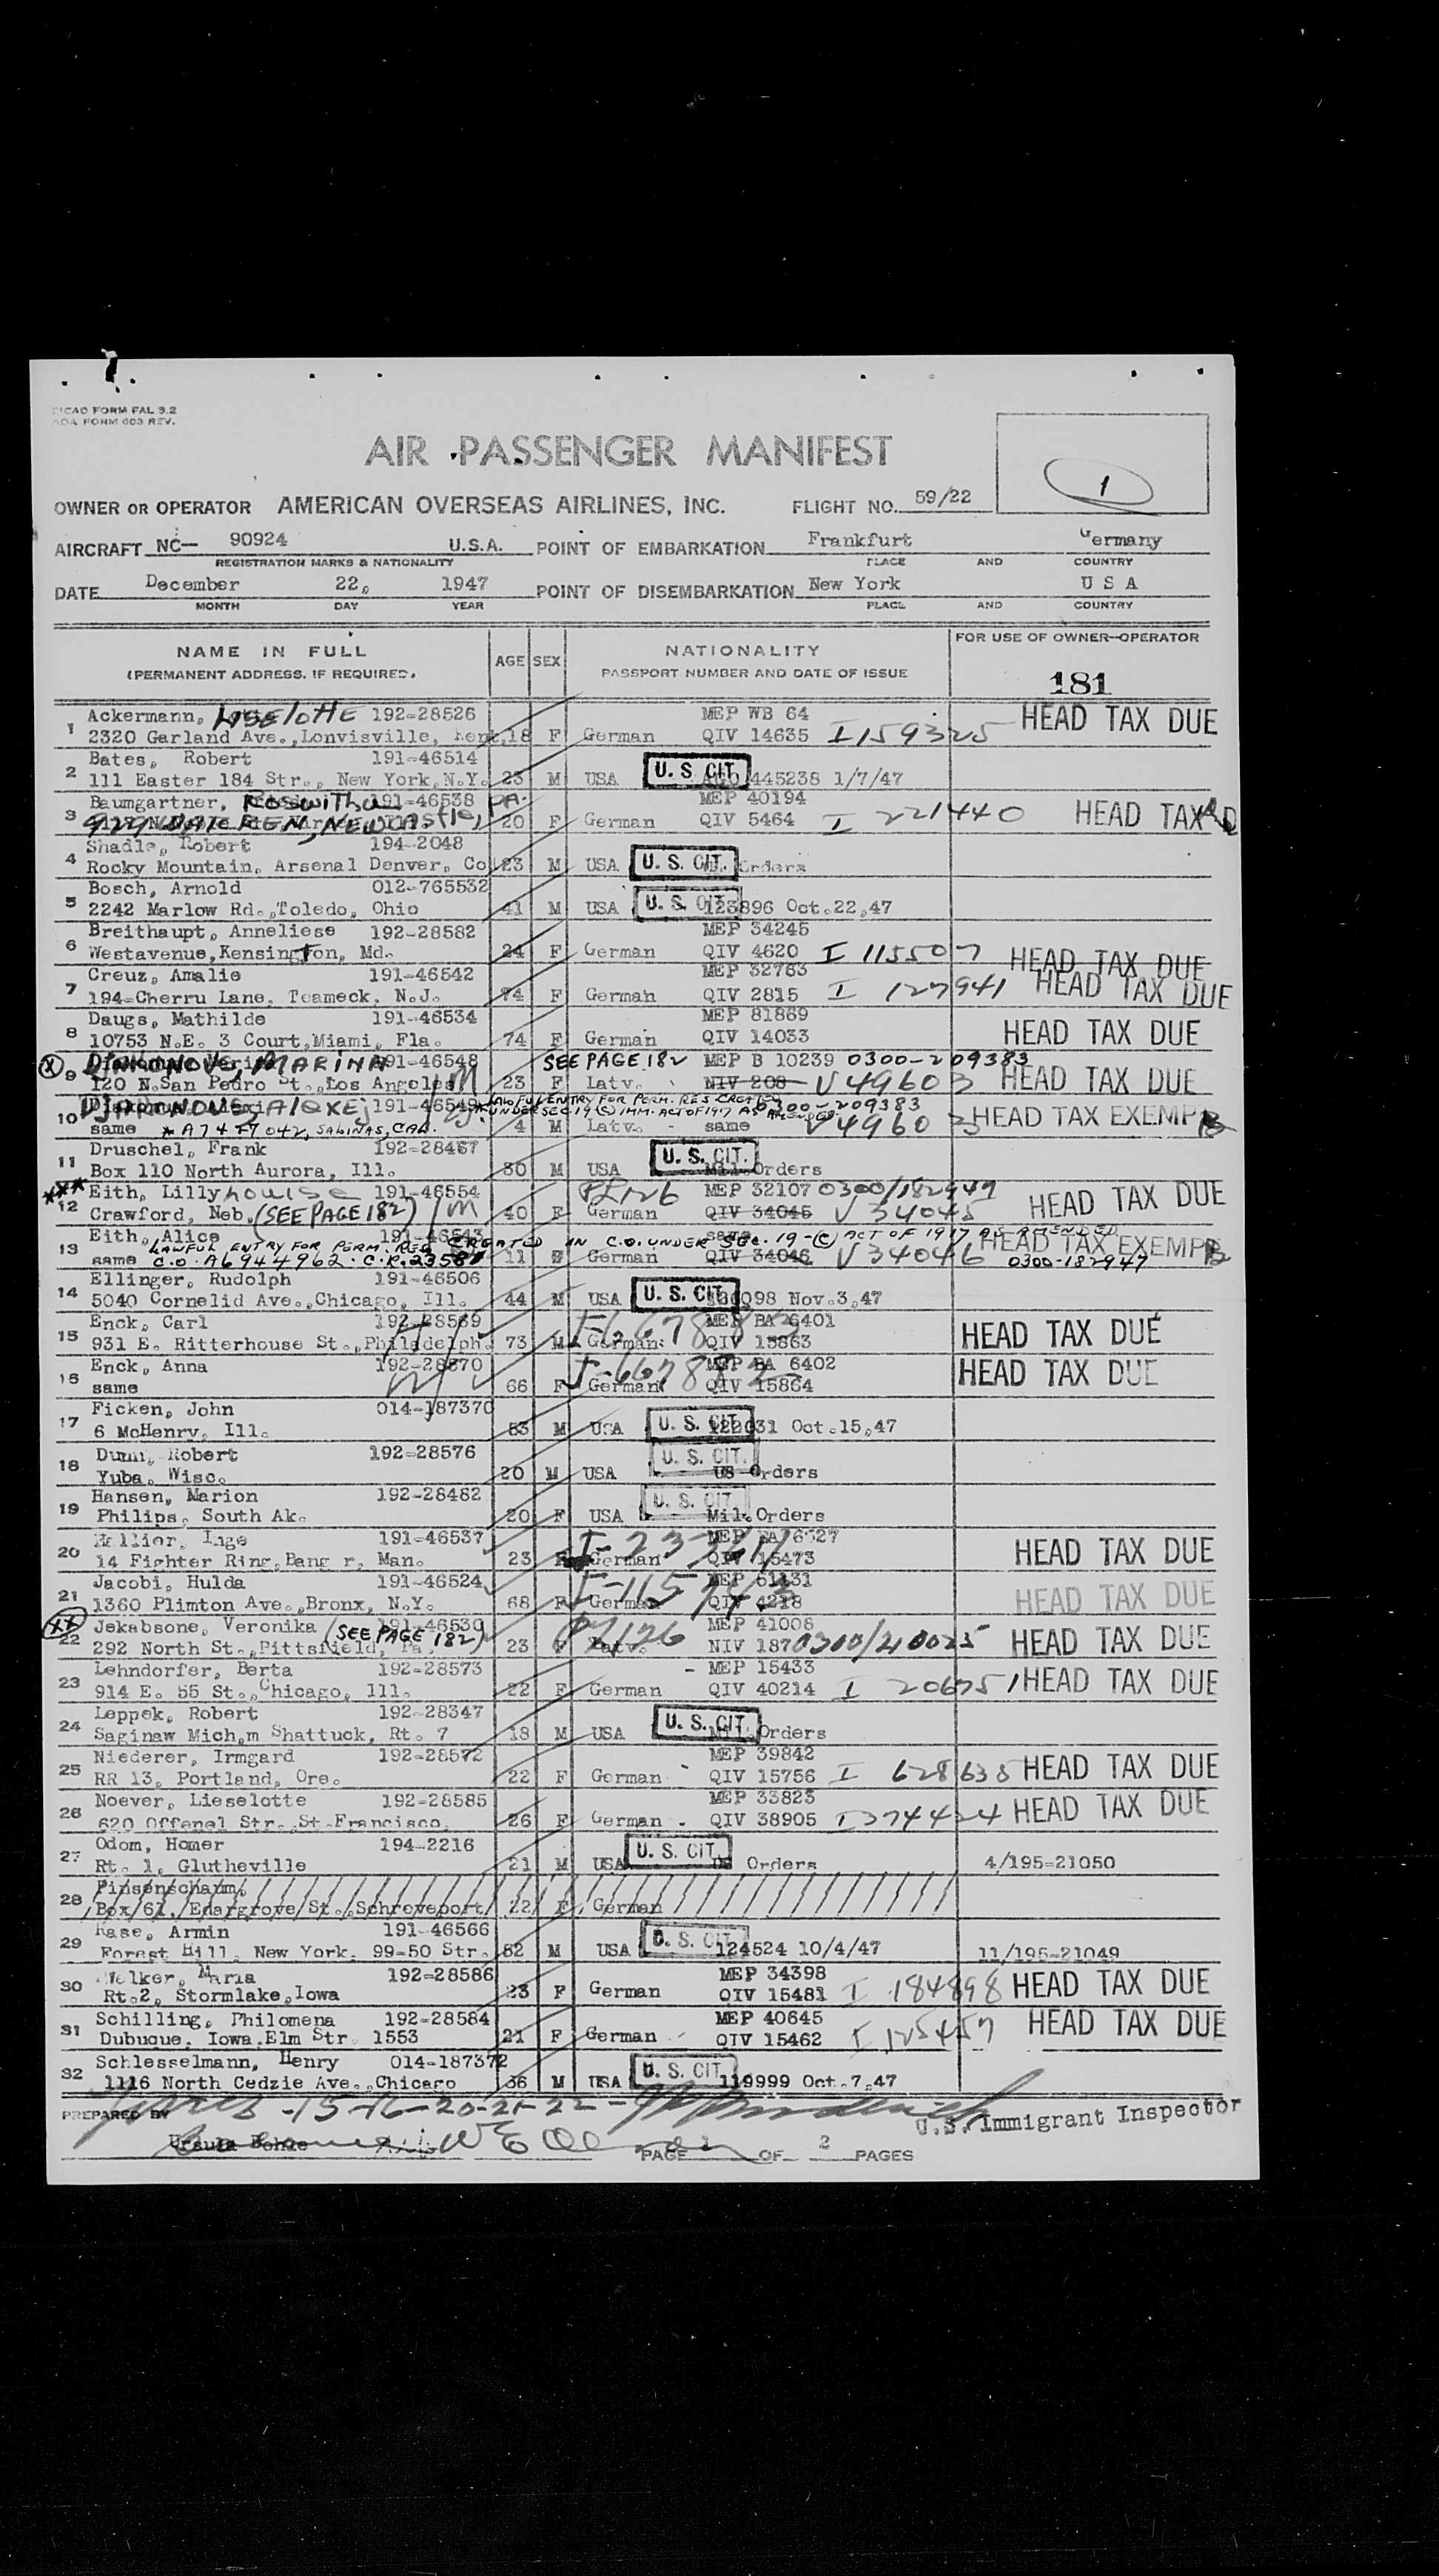 ICAO FORM FAL 3.2
AOA FORM 603 REV.
AIR PASSENGER MANIFEST
1
OWNER OR OPERATOR AMERICAN OVERSEAS AIRLINES, INC. FLIGHT NO. 59/22
AIRCRAFT NC— 90924 U.S.A. POINT OF EMBARKATION Frankfurt Germany
REGISTRATION MARKS & NATIONALITY PLACE AND COUNTRY
DATE December 22, 1947 POINT OF DISEMBARKATION New York U S A
MONTH DAY YEAR PLACE AND COUNTRY
NAME IN FULL AGE SEX NATIONALITY FOR USE OF OWNER-OPERATOR
(PERMANENT ADDRESS, IF REQUIRED) PASSPORT NUMBER AND DATE OF ISSUE
181
1 Ackermann, Liselotte 192-28526 MEP WB 64 HEAD TAX DUE
2320 Garland Ave.,Lonvisville, Kent. 18 F German QIV 14635 I 159325
2 Bates, Robert 191-46514 U. S. CIT.
111 Easter 184 Str., New York,N.Y. 23 M USA 445238 1/7/47
3 Baumgartner, Roswitha 191-46538 PA. MEP 40194 HEAD TAX
NEW Castle, 20 F German QIV 5464 I 221440
4 Shadle, Robert 194-2048 U. S. CIT.
Rocky Mountain, Arsenal Denver, Co 23 M USA Orders
5 Bosch, Arnold 012-765532 U. S. CIT.
2242 Marlow Rd.,Toledo, Ohio 41 M USA 123896 Oct.22,47
6 Breithaupt, Anneliese 192-28582 MEP 34245
Westavenue,Kensington, Md. 24 F German QIV 4620 I 115507 HEAD TAX DUE
7 Creuz, Amalie 191-46542 MEP 32783 HEAD TAX DUE
194-Cherru Lane, Teameck, N.J. 74 F German QIV 2815 I 127941
8 Daugs, Mathilde 191-46534 MEP 81869 HEAD TAX DUE
10753 N.E. 3 Court,Miami, Fla. 74 F German QIV 14033
X 9 DIAKONOVS, MARINA 191-46548 SEE PAGE 182 MEP B 10239 0300-209383
120 N.San Pedro St.,Los Angeles 23 F Latv. NIV 208 V 49603 HEAD TAX DUE
10 DIAKONOVS, Alexej 191-46549 LAWFUL ENTRY FOR PERM. RES CREATED 0300-209383
* UNDER SEC 19 (C) IMM. ACT OF 1917 AS AMENDED HEAD TAX EXEMP
same SALINAS, CAL. 4 M Latv. same V 49603
11 Druschel, Frank 192-28487 U. S. CIT.
Box 110 North Aurora, Ill. 30 M USA Mil.Orders
*** 12 Eith, Lilly Louise 191-46554 MEP 32107 0300/182949 HEAD TAX DUE
Crawford, Neb. (SEE PAGE 182) 40 F German QIV 34045 V 34045
13 Eith, Alice 191-46543 same
LAWFUL ENTRY FOR PERM. RES CREATED IN C.O. UNDER SEC. 19-(C) ACT OF 1917 AS AMENDED HEAD TAX EXEMP
same C.O. A6944962 C.R. 23581 11 F German QIV 34046 V 34046 0300-182947
14 Ellinger, Rudolph 191-46506 U. S. CIT.
5040 Cornelid Ave.,Chicago, Ill. 44 M USA 130098 Nov.3,47
15 Enck, Carl 192-28569 MEP BA 6401 HEAD TAX DUE
931 E. Ritterhouse St.,Philadelph. 73 M German QIV 15863
16 Enck, Anna 192-28570 MEP BA 6402 HEAD TAX DUE
same 66 F German QIV 15864
17 Ficken, John 014-187370 U. S. CIT.
6 McHenry, Ill. 53 M USA 122031 Oct.15,47
18 Dunn, Robert 192-28576 U. S. CIT.
Yuba, Wisc. 20 M USA US Orders
19 Hansen, Marion 192-28482 U. S. CIT.
Philips, South Ak. 20 F USA Mil.Orders
20 Hellier, Inge 191-46537 HEAD TAX DUE
14 Fighter Ring,Bang r, Man. 23 F German QIV 15473
21 Jacobi, Hulda 191-46524 MEP 61131 HEAD TAX DUE
1360 Plimton Ave.,Bronx, N.Y. 68 F German QIV 4218
XX 22 Jekabsone, Veronika (SEE PAGE 182) 191-46530 MEP 41008 HEAD TAX DUE
292 North St.,Pittsfield, 23 F Latv. NIV 187 0300/210025
23 Lehndorfer, Berta 192-28573 MEP 15433 HEAD TAX DUE
914 E. 55 St.,Chicago, Ill. 22 F German QIV 40214 I 206751
24 Leppek, Robert 192-28347 U. S. CIT.
Saginaw Mich,m Shattuck, Rt. 7 18 M USA Mil.Orders
25 Niederer, Irmgard 192-28572 MEP 39842 HEAD TAX DUE
RR 13, Portland, Ore. 22 F German QIV 15756 I 628635
26 Noever, Lieselotte 192-28585 MEP 33823 HEAD TAX DUE
620 Offenel Str.,St.Francisco. 26 F German QIV 38905 I 274424
27 Odom, Homer 194-2216 U. S. CIT.
Rt. 1, Glutheville 21 M USA US Orders 4/195-21050
28 Pinsenschaum,
Box 61, Edargrove St.,Schreveport 22 F German
29 Rase, Armin 191-46566 U. S. CIT.
Forest Hill, New York, 99-50 Str. 52 M USA 124524 10/4/47 11/195-21049
30 Welker, Maria 192-28586 MEP 34398 HEAD TAX DUE
Rt.2, Stormlake,Iowa 23 F German QIV 15481 I 184898
31 Schilling, Philomena 192-28584 MEP 40645 HEAD TAX DUE
Dubuque, Iowa.Elm Str 1553 21 F German QIV 15462 I 125457
32 Schlesselmann, Henry 014-187372 U. S. CIT.
1116 North Cedzie Ave.,Chicago 36 M USA 119999 Oct.7,47
-15-16-20-21-22-
PREPARED BY U.S. Immigrant Inspector
Ursula Bohne
PAGE 1 OF 2 PAGES